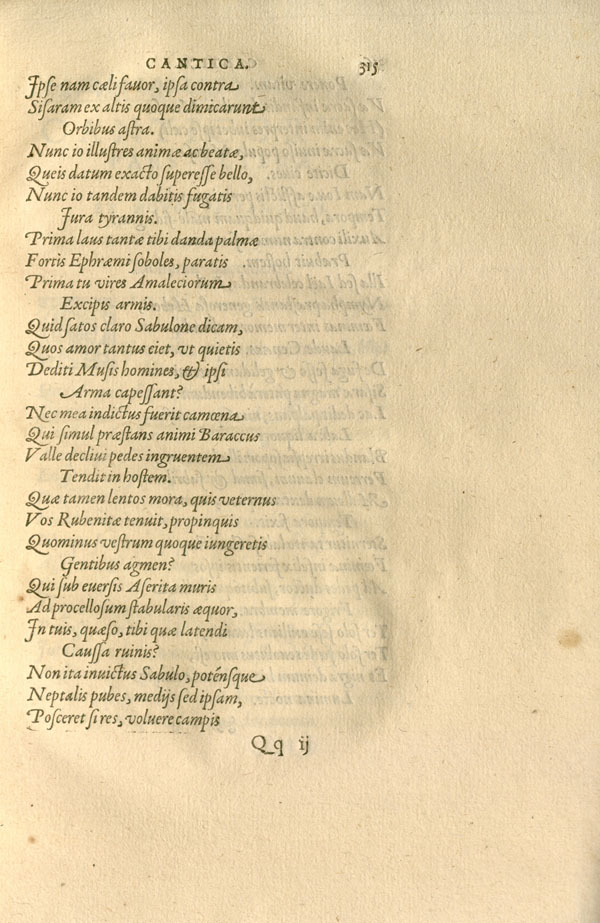 CANTICA. 315
Ipse nam cæli fauor, ipsa contra
Sisaram ex altis quoque dimicarunt
Orbibus astra.
Nunc io illustres animæ ac beatæ,
Queis datum exacto superesse bello,
Nunc io tandem dabitis fugatis
Jura tyrannis.
Prima laus tantæ tibi danda palmæ
Fortis Ephræmi soboles, paratis
Prima tu vires Amaleciorum
Excipis armis.
Quid satos claro Sabulone dicam,
Quos amor tantus ciet, vt quietis
Dediti Musis homines, & ipsi
Arma capessant?
Nec mea indictus fuerit camœna
Qui simul præstans animi Baraccus
Valle decliui pedes ingruentem
Tendit in hostem.
Quæ tamen lentos mora, quis veternus
Vos Rubenitæ tenuit, propinquis
Quominus vestrum quoque iungeretis
Gentibus agmen?
Qui sub euersis Aserita muris
Ad procellosum stabularis æquor,
In tuis, quæso, tibi quæ latendi
Caussa ruinis?
Non ita inuictus Sabulo, poténsque
Neptalis pubes, medijs sed ipsam,
Posceret si res, voluere campis
Qq ij